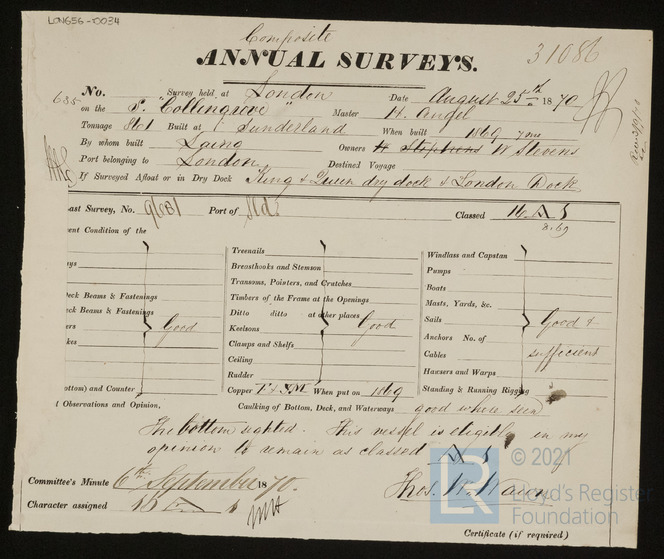 LON656-0034
Composite
ANNUAL SURVEYS.
31086
No. Survey held at London Date August 25th 1870
635 on the S. "Collingrove" Master H. Angel
Tonnage 861 Built at Sunderland When built 1869 7mo
By whom built Laing Owners W Stephens W Stevens
Port belonging to London Destined Voyage
If Surveyed Afloat or in Dry Dock King & Queen dry dock & London Dock
ast Survey, No. 9681 Port of Sld Classed 16 A 1
8.69
esent Condition of the
Treenails
Windlass and Capstan
Breasthooks and Stemson
Pumps
Transoms, Pointers, and Crutches
Boats
Deck Beams & Fastenings
Timbers of the Frame at the Openings
Masts, Yards, &c.
eck Beams & Fastenings
Ditto ditto at other places
Sails
Good
Keelsons
Good
Good &
Anchors No. of
Clamps and Shelfs
Cables
sufficient
Ceiling
Hawsers and Warps
Rudder
Standing & Running Rigging
ottom) and Counter
Copper When put on 1869
l Observations and Opinion,
Caulking of Bottom, Deck, and Waterways good where seen
The bottom sighted. This vessel is eligible in my
opinion to remain as classed A 1
Committee's Minute 6th September 1870.
Thos. W. Wawn
Character assigned 16 A 1
Certificate (if required)
© 2021
Lloyd's Register
Foundation
LR